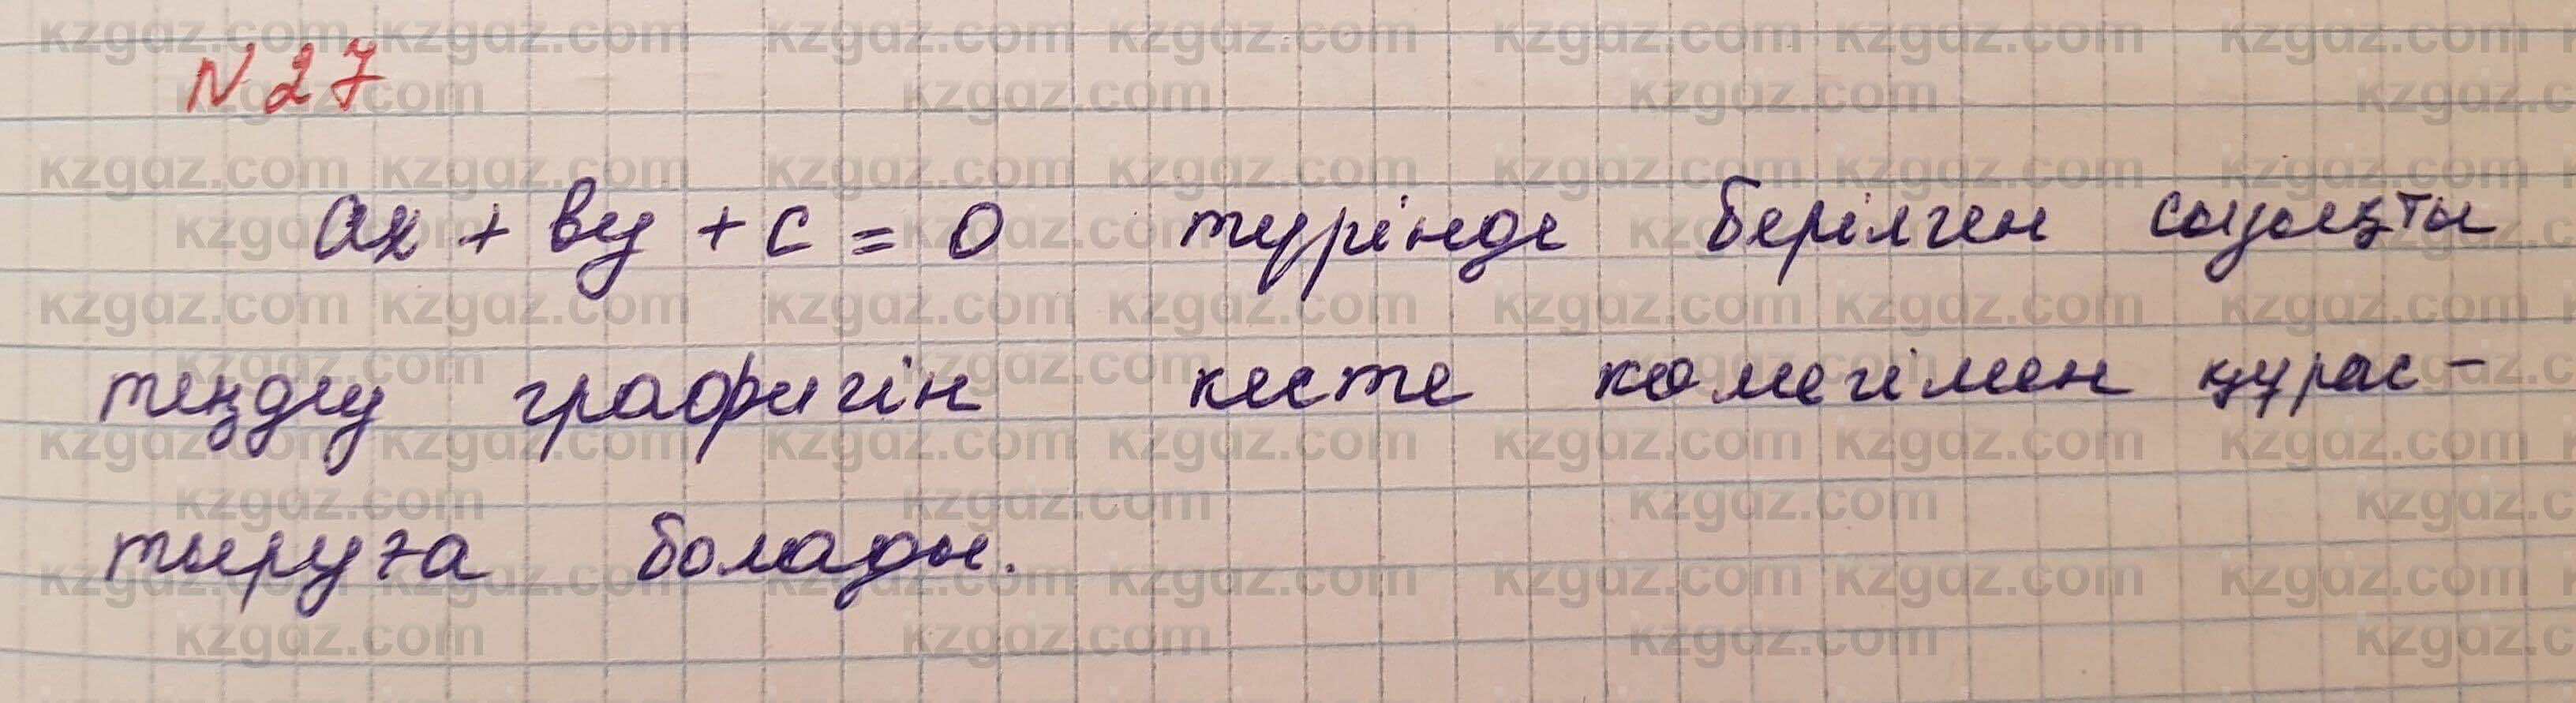 N 27
ax + by + c = 0 түрінде берілген сызықты
теңдеу графигін кесте көмегімен құрас-
тыруға болады.